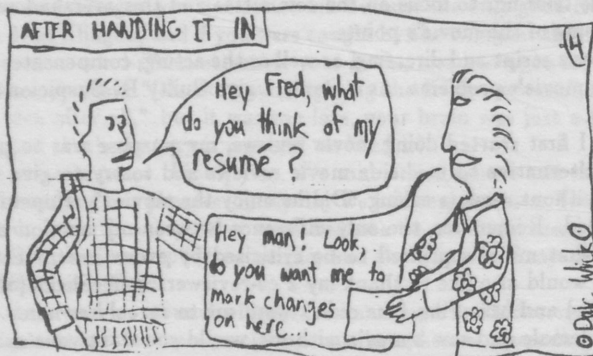 AFTER HANDING IT IN
Hey Fred, what
do you think of my
resume
Hey, man! Look,
do you want me to
mark changes
on here
14